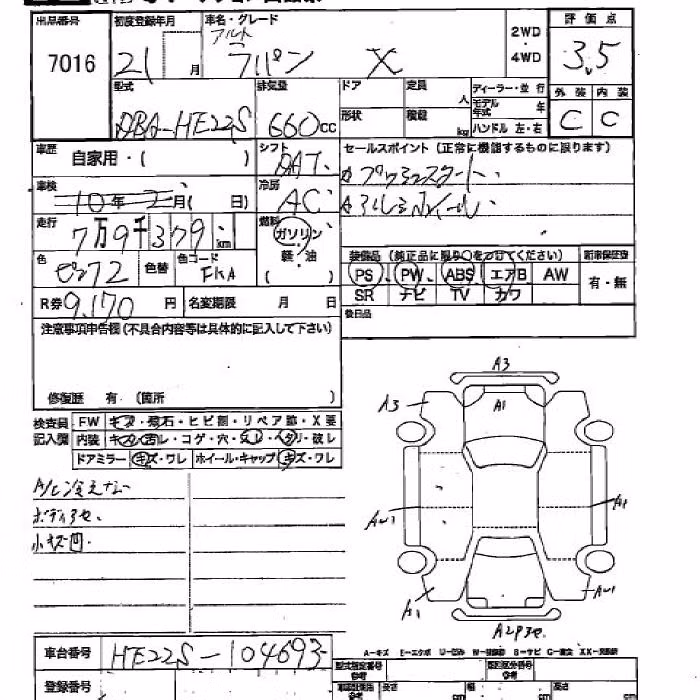 出品番号 初度登録年月 車名・グレード 2WD・4WD 評価点
7016 21 月 アルト ラパン X 3.5
型式 排気量 ドア 定員 人 ディーラー・並行 外装 内装
DBA-HE22S 660cc 形状 積載 kg モデル年式 年 ハンドル 左・右 C C
車歴 自家用・( ) シフト DAT セールスポイント (正常に機能するものに限ります)
プッシュスタート
車検 10年2月( 日) 冷房 AC アルミホイール
走行 7万9千379km 燃料 ガソリン 軽・油 ( )
色 色替 色コード 装備品 (純正品に限り○をつけてください)
PS PW ABS エアB AW 有・無
SR ナビ TV カワ
R券 9,170 円 名変期限 月 日 後日品
注意事項申告欄(不具合内容等は具体的に記入して下さい)
修復歴 有 (箇所 )
検査員記入欄 FW キズ・飛石・ヒビ割・リペア跡・X要
内装 キズ・汚レ・コゲ・穴・スレ・ヘタリ・破レ
ドアミラー キズ・ワレ ホイール・キャップ キズ・ワレ
A/C冷えない
ボディアセ
小キズ凹
A3
A3 A1
A1
A1
車台番号 HE22S-104693
登録番号
型式指定番号 類別区分番号
長さ cm 高さ cm